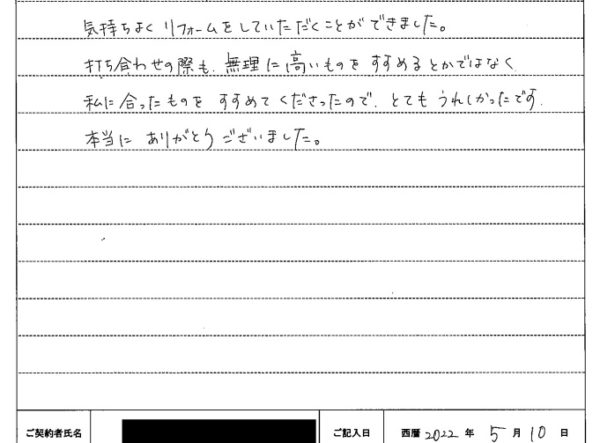 気持ちよくリフォームをしていただくことができました。
打ち合わせの際も、無理に高いものをすすめるとかではなく
私に合ったものをすすめてくださったので、とてもうれしかったです。
本当にありがとうございました。
ご契約者氏名 ご記入日 西暦 2022 年 5 月 10 日